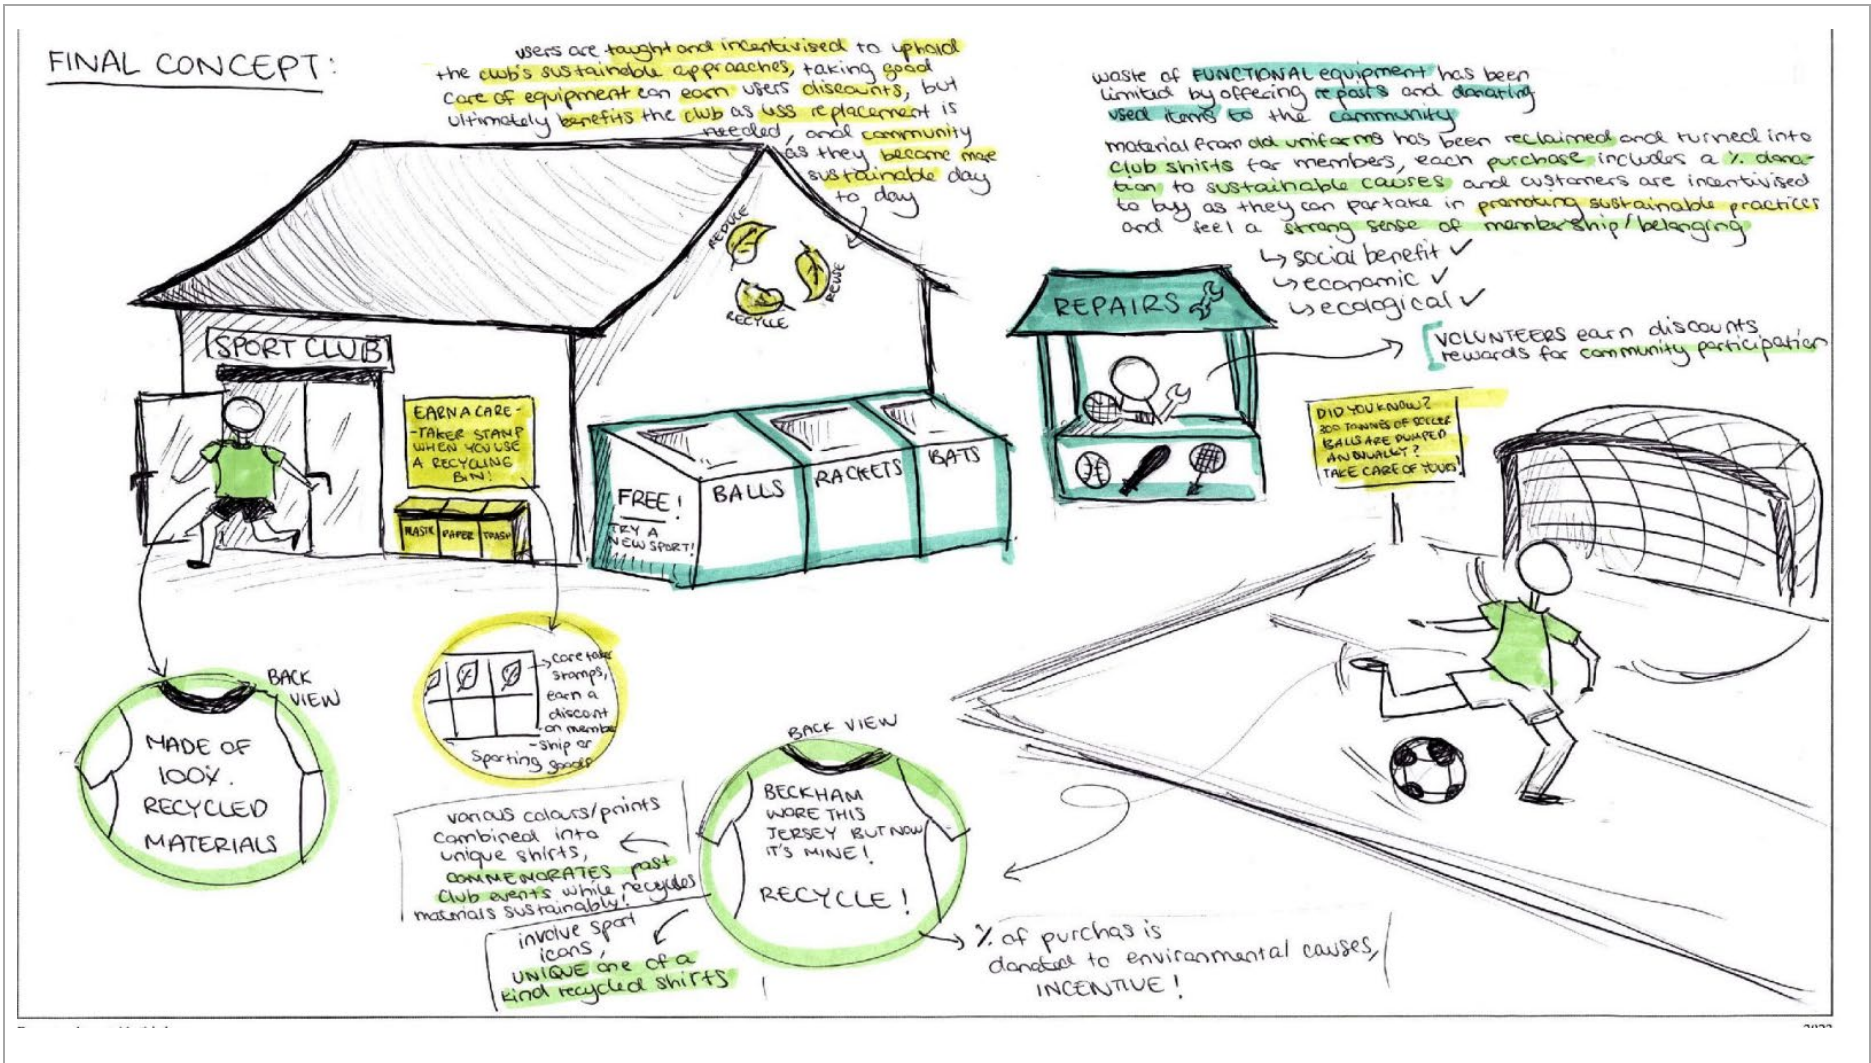 FINAL CONCEPT:
users are taught and incentivised to uphold
the club's sustainable approaches, taking good
care of equipment can earn users discounts, but
ultimately benefits the club as less replacement is
needed, and community
as they become more
sustainable day
to day
waste of FUNCTIONAL equipment has been
limited by offering repairs and donating
used items to the community
material from old uniforms has been reclaimed and turned into
club shirts for members, each purchase includes a % dona-
tion to sustainable causes and customers are incentivised
to buy as they can partake in promoting sustainable practices
and feel a strong sense of membership/belonging
↳ social benefit ✓
↳ economic ✓
↳ ecological ✓
VOLUNTEERS earn discounts
rewards for community participation
REDUCE
REUSE
RECYCLE
SPORT CLUB
EARN A CARE-
-TAKER STAMP
WHEN YOU USE
A RECYCLING
BIN!
PLASTIC PAPER TRASH
FREE!
TRY A
NEW SPORT!
BALLS
RACKETS
BATS
REPAIRS
DID YOU KNOW?
300 TONNES OF SOCCER
BALLS ARE DUMPED
ANNUALLY?
TAKE CARE OF YOURS!
BACK
VIEW
MADE OF
100%
RECYCLED
MATERIALS
caretaker
stamps,
earn a
discount
on member
-ship or
sporting goods
BACK VIEW
BECKHAM
WORE THIS
JERSEY BUT NOW
IT'S MINE!
RECYCLE!
various colours/prints
combined into
unique shirts,
COMMEMORATES past
club events while recycles
materials sustainably!
involve sport
icons,
UNIQUE one of a
kind recycled shirts
% of purchas is
donated to environmental causes,
INCENTIVE!